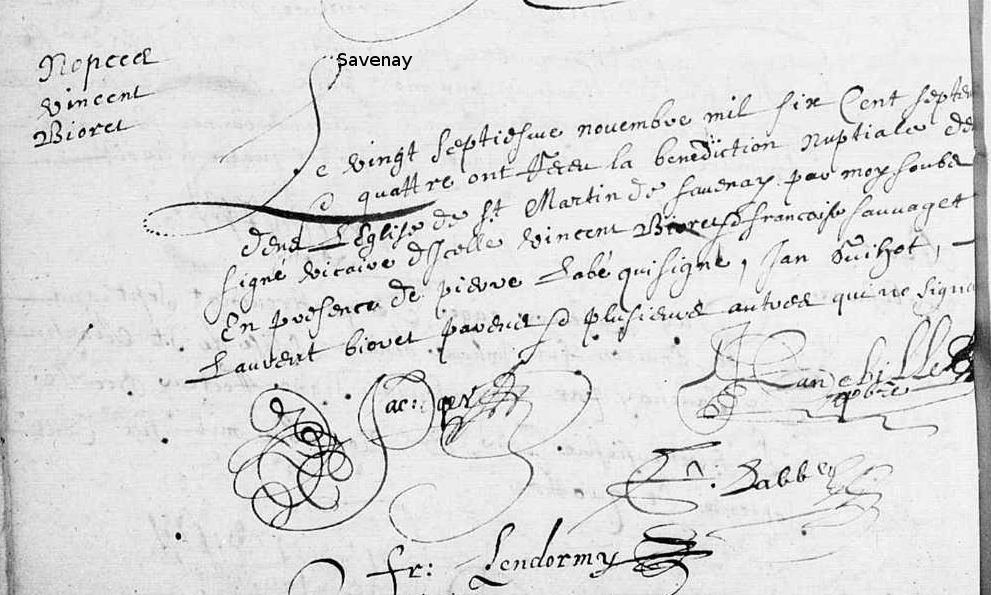 Nopces
Vincent
Bioret
Savenay
Le vingt septiesme novembre mil six Cent septen
& quattre ont Receu la benediction Nuptiale de
dens L'Eglise de St Martin de Savenay par moy soubs
signé vicaire d'Icelle Vincent Bioret & francoise sauvaget
En presence de pierre Labé qui signe, Jan Guihot,
Laurent bioret parens & plusieurs autres qui ne signe
Jac:
Randebille
pbre
P. Labbey
fr: Lendormy